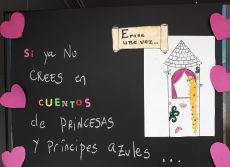 Erase
una vez...
Si ya No
CREES en
CUENTOS
de PRINCESAS
y Príncipes azules...